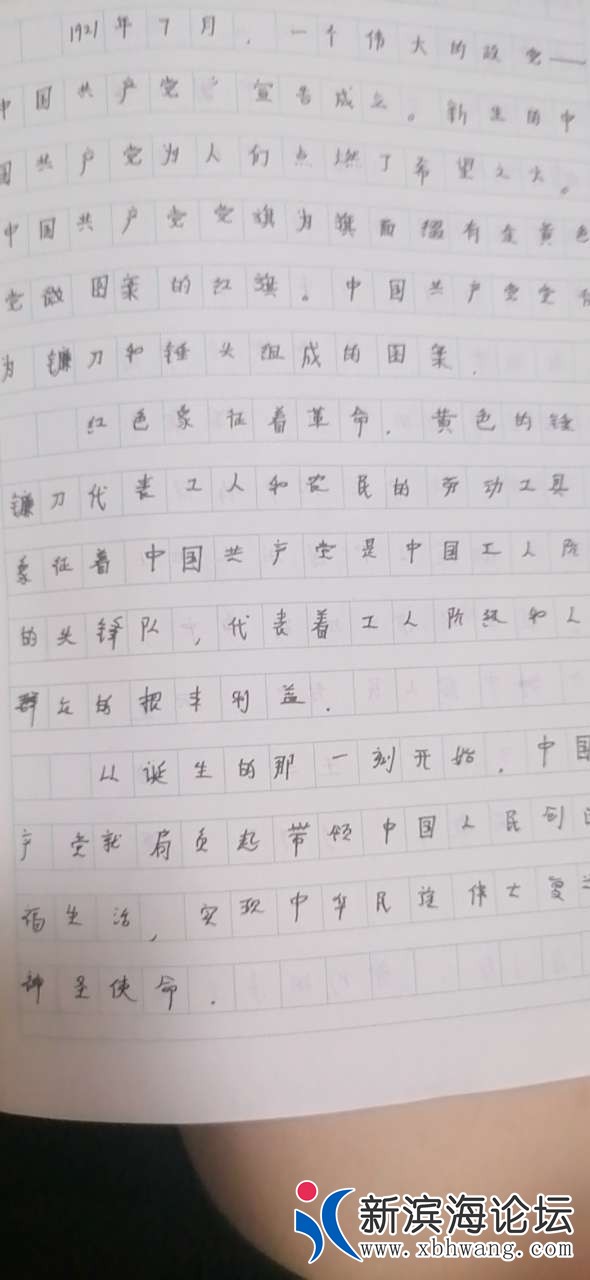 1921年7月，一个伟大的政党——
中国共产党 宣告成立。新生的中
国共产党为人们点燃了希望之火。
中国共产党党旗为旗面缀有金黄色
党徽图案的红旗。中国共产党党
为镰刀和锤头组成的图案.
红色象征着革命，黄色的锤
镰刀代表工人和农民的劳动工具
象征着中国共产党是中国工人阶
的先锋队，代表着工人阶级和人
群众的根本利益.
从诞生的那一刻开始，中国
产党就肩负起带领中国人民创
福生活，实现中华民族伟大复兴
神圣使命.
新滨海论坛
www.xbhwang.com